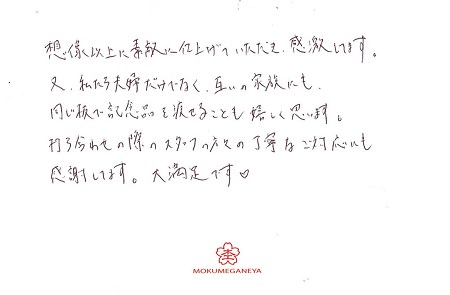 想像以上に素敵に仕上げていただき、感激してます。
又、私たち夫婦だけでなく、互いの家族にも、
同じ板で記念品を渡せることも嬉しく思います。
打ち合わせの際のスタッフの方々の丁寧なご対応にも
感謝してます。大満足です♡
MOKUMEGANEYA